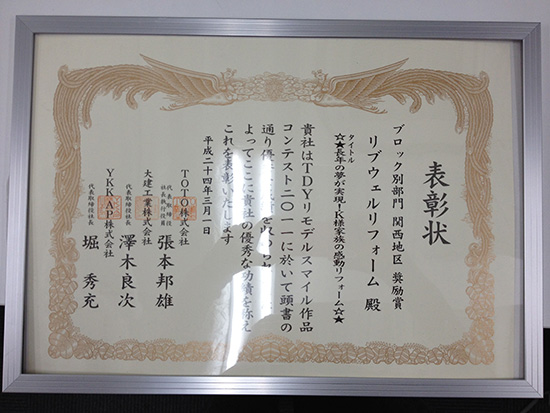 表彰状
ブロック別部門 関西地区 奨励賞
リブウェルリフォーム 殿
タイトル
☆★長年の夢が実現!K様家族の感動リフォーム☆★
貴社はTDYリモデルスマイル作品
コンテスト二〇一一に於いて頭書の
通り優
を収められ
よってここに貴社の優秀な功績を称え
これを表彰いたします
平成二十四年三月一日
TOTO株式会社
代表取締役
社長執行役員
張本邦雄
大建工業株式会社
代表取締役社長
澤木良次
YKK AP株式会社
代表取締役社長
堀秀充